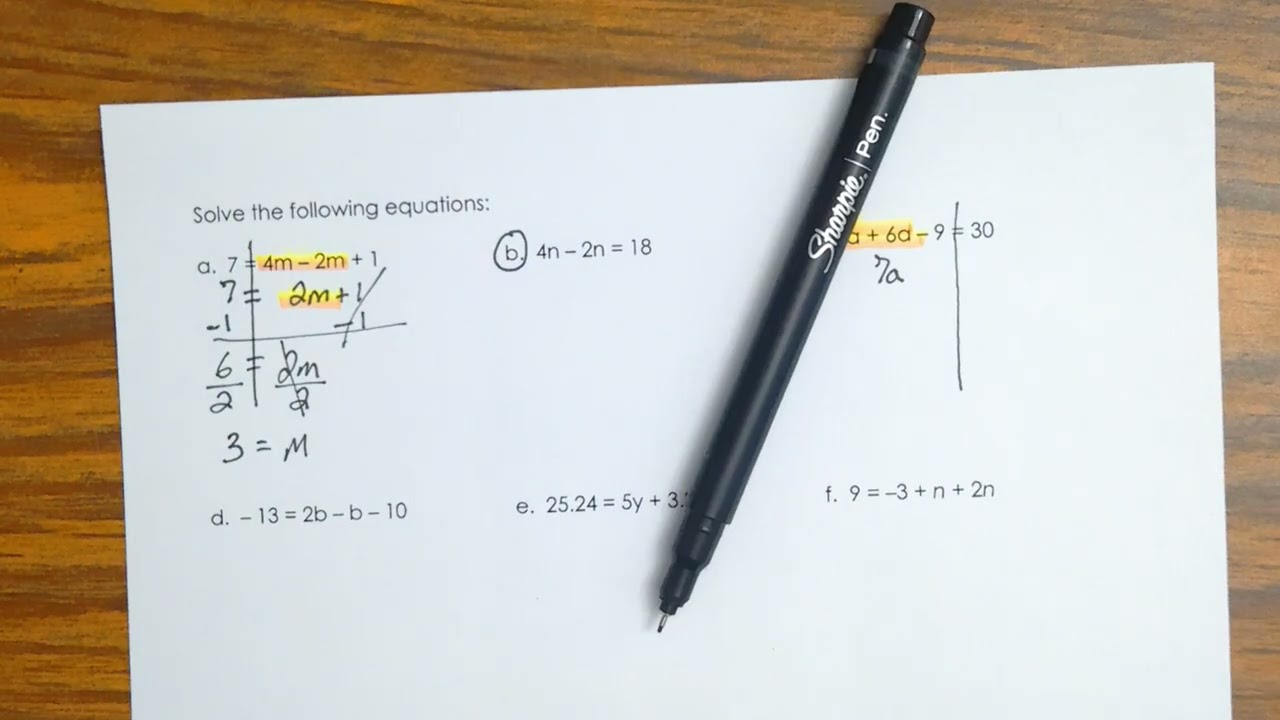 Solve the following equations:
a. 7 = 4m – 2m + 1
7 = 2m + 1
-1 -1
6 = 2m
2 2
3 = M
b. 4n – 2n = 18
a + 6a – 9 = 30
7a
d. – 13 = 2b – b – 10
e. 25.24 = 5y + 3.
f. 9 = –3 + n + 2n
Sharpie. | Pen.